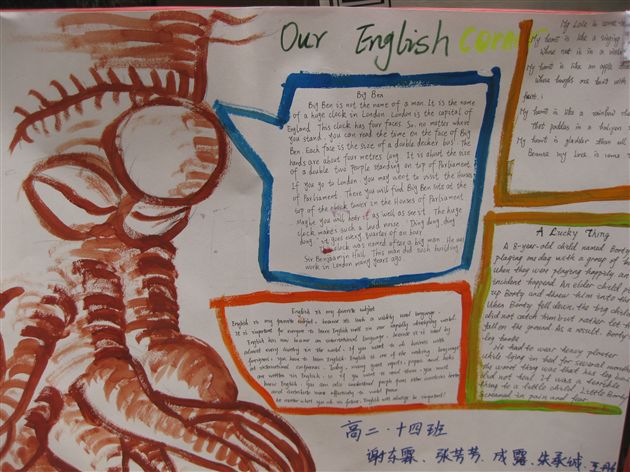 Our English corner
Big Ben
Big Ben is not the name of a man. It is the name
of a huge clock in London. London is the capital of
England. This clock has four faces. So, no matter where
you stand, you can read the time on the face of Big
Ben. Each face is the size of a double decker bus. The
hands are about four metres long. It is about the size
of a double two people standing on top of Parliament.
If you go to London, you may want to visit the Houses
of Parliament. There you will find Big Ben sits at the
top of the clock tower in the Houses of Parliament.
Maybe you will hear it as well as see it. The huge
clock makes such a loud noise. "Ding dong, ding
dong" it goes every quarter of an hour.
clock was named after a big man. He was
Sir Benjamin Hall. This man did such building
work in London many years ago.
English is my favorite subject
English is my favorite subject, because it's such a widely used language.
It is important for everyone to learn English well in our rapidly developing world.
English has now become an international language, because it is used by
almost every country in the world. If you want to do business with
foreigners, you have to learn English. English is one of the working languages
at international conferences. Today, many best papers and books
are written in English, so if you want to read them, you must
know English. You can also understand people from other countries better
and contribute more effectively to world peace.
No matter what you do in future, English will always be important!
My heart is like a singing
My heart is like an apple
My heart is like a rainbow shell
That paddles in a halcyon
My heart is gladder than all
Because my love is come
A Lucky Thing
A 8-year-old child named Booty
playing one day with a group of
when they were playing happily an
incident happened. An elder child p
up Booty and threw him into the
When Booty fell down, the big child
did not catch him but rather let
fall on the ground. As a result, Booty
leg
He had to wear heavy plaster
while lying in bed for several months
the worst thing was that his leg bone
did not heal. It was a terrible
thing to a little child. Little Booty
screamed in pain and fear.
高二·十四班
谢东霖、张芳芳、成露、朱承斌、王丹